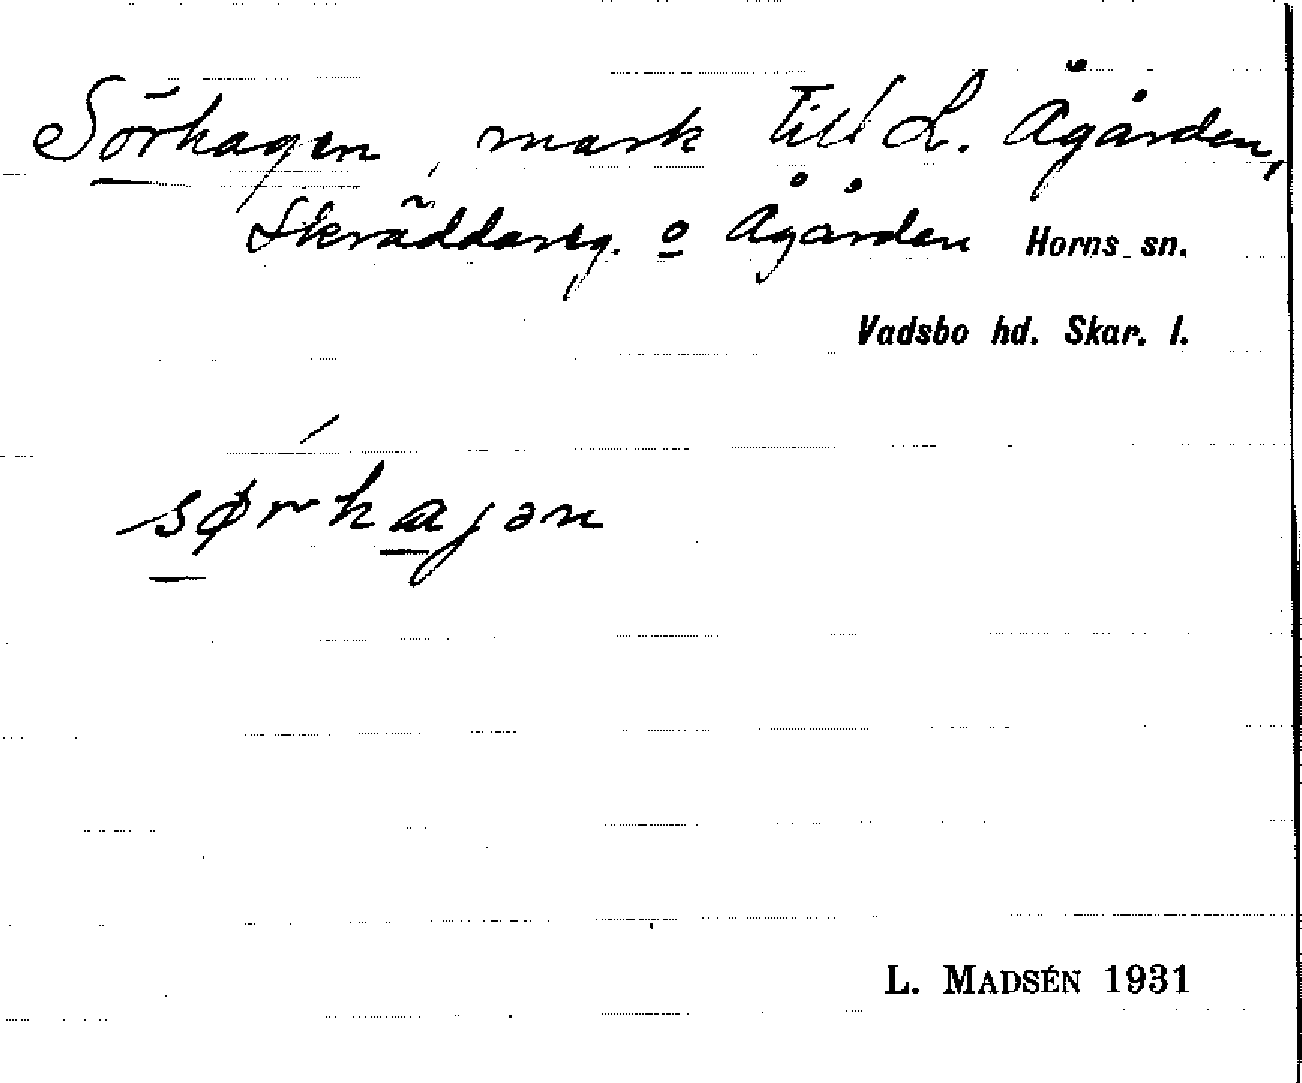 Sörhagen, mark till L. Ågården,
Skräddareg. o Ågården Horns sn.
Vadsbo hd. Skar. l.
sørhajən
L. MADSÉN 1931